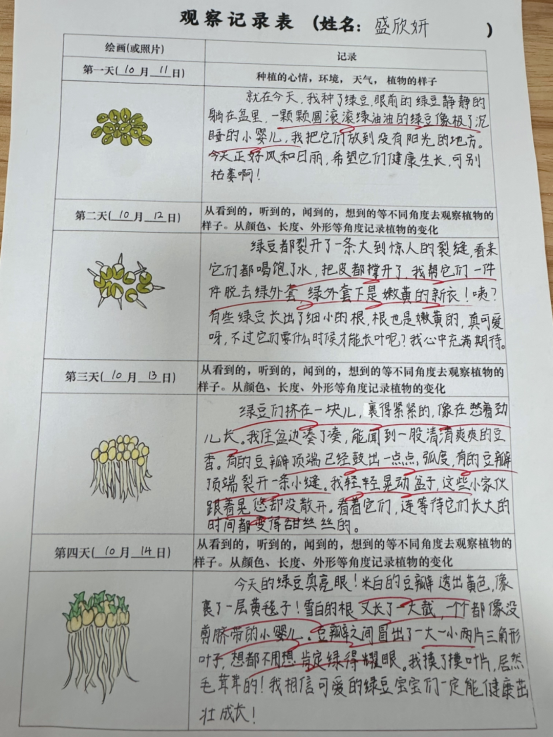 观察记录表 (姓名: 盛欣妍 )
绘画(或照片)
记录
第一天( 10 月 11 日)
种植的心情, 环境, 天气, 植物的样子
就在今天,我种了绿豆,眼前的绿豆静静的
躺在盆里,一颗颗圆滚滚绿油油的绿豆像极了沉
睡的小婴儿,我把它们放到没有阳光的地方。
今天正好风和日丽,希望它们健康生长,可别
枯萎啊!
第二天( 10 月 12 日)
从看到的,听到的,闻到的,想到的等不同角度去观察植物的
样子。从颜色、长度、外形等角度记录植物的变化
绿豆都裂开了一条大到惊人的裂缝,看来
它们都喝饱了水,把皮都撑开了,我帮它们一件
件脱去绿外套,绿外套下是嫩黄的新衣!咦?
有些绿豆长出了细小的根,根也是嫩黄的,真可爱
呀,不过它们要什么时候才能长叶呢?我心中充满期待。
第三天( 10 月 13 日)
从看到的,听到的,闻到的,想到的等不同角度去观察植物的
样子。从颜色、长度、外形等角度记录植物的变化
绿豆们挤在一块儿,裹得紧紧的,像在憋着劲
儿长。我往盆边凑了凑,能闻到一股清清爽爽的豆
香。有的豆瓣顶端已经鼓出一点点弧度,有的豆瓣
顶端裂开一条小缝。我轻轻晃动盆子,这些小家伙
跟着晃悠却没散开。看着它们,连等待它们长大的
时间都变得甜丝丝的。
第四天( 10 月 14 日)
从看到的,听到的,闻到的,想到的等不同角度去观察植物的
样子。从颜色、长度、外形等角度记录植物的变化
今天的绿豆真亮眼!米白的豆瓣透出黄色,像
裹了一层黄毯子!雪白的根又长了一大截,一个都像没
剪脐带的小婴儿。豆瓣之间冒出了一大一小两片三角形
叶子,想都不用想肯定绿得耀眼。我摸了摸叶片,居然
毛茸茸的!我相信可爱的绿豆宝宝们一定能健康茁
壮成长!